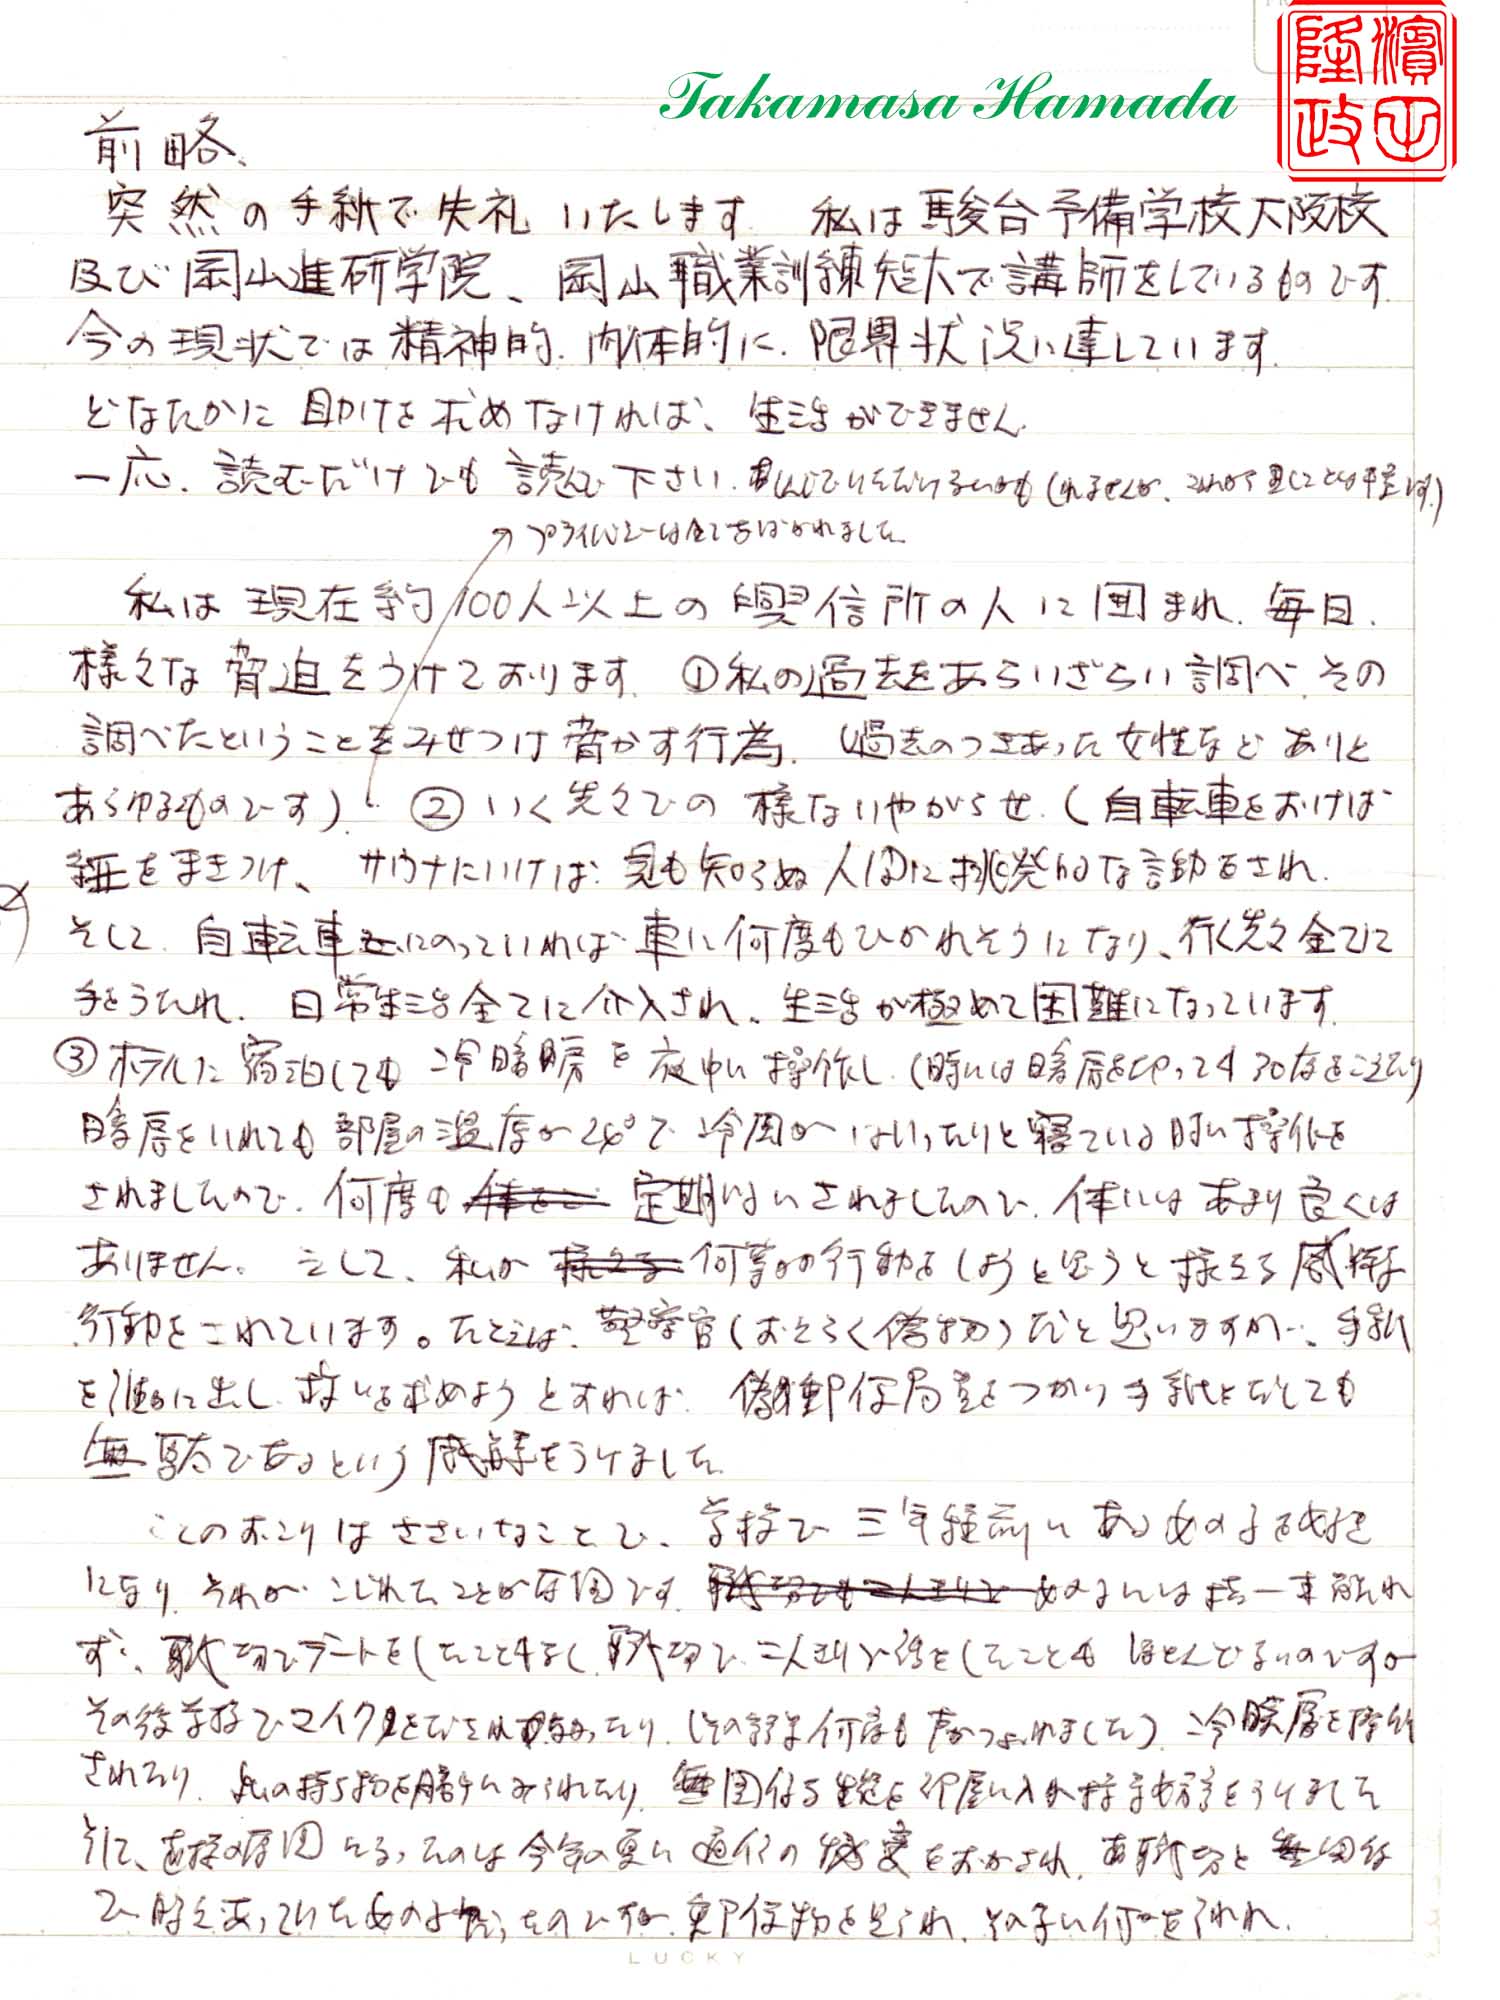 Takamasa Hamada
濱田隆政
前略、
突然の手紙で失礼いたします。私は駿台予備学校大阪校
及び岡山進研学院、岡山職業訓練短大で講師をしているものです。
今の現状では精神的、肉体的に、限界状況に達しています。
どなたかに助けを求めなければ、生活ができません。
一応、読むだけでも読んで下さい。
プライバシーは全てあばかれました。
私は現在約100人以上の興信所の人に囲まれ、毎日、
様々な脅迫をうけております。①私の過去をあらいざらい調べ、その
調べたということをみせつけ脅かす行為。(過去のつきあった女性など ありと
あらゆるものです)。②いく先々での様ないやがらせ。(自転車をおけば
紙をまきつけ、サウナにいけば見も知らぬ人間に挑発的な言動をされ、
そして、自転車にのっていれば車に何度もひかれそうになり、行く先々全てに
手をうたれ、日常生活全てに介入され、生活が極めて困難になっています。
③ホテルに宿泊しても冷暖房を夜中に操作し、(時には暖房を切っても30度をこえたり
暖房をいれても部屋の温度が24°で冷風がはいったりと寝ている時に操作を
されましたので、何度も 定期的にされましたので、体にはあまり良くは
ありません。そして、私が 何等かの行動をしようと思うと
行動をされています。たとえば、警察官(おそらく偽物)だと思いますが、手紙
を 出し、救いを求めようとすれば、偽郵便局員をつかい手紙をだしても
無駄であるという をうけました。
ことのおこりはささいなことで、学校で三年程前にある女の子を好き
になり、それが、こじれたことが原因です。 女の子には指一本触れ
ず、職場でデートをしたこともなく、職場で二人きりで話をしたこともほとんどないのですが
その後学校でマイク をされなかったり、(その為何度も声がつぶれました)、冷暖房を操作
されたり、私の持ち物を勝手にみられたり、無関係な生徒を部屋に入れ をうけました
そして、直接の原因になったのは今年の夏に通信の秘密をおかされ、 職場と無関係
で 女の子だったのですが、郵便物を見られ、その子に何 られ、
LUCKY